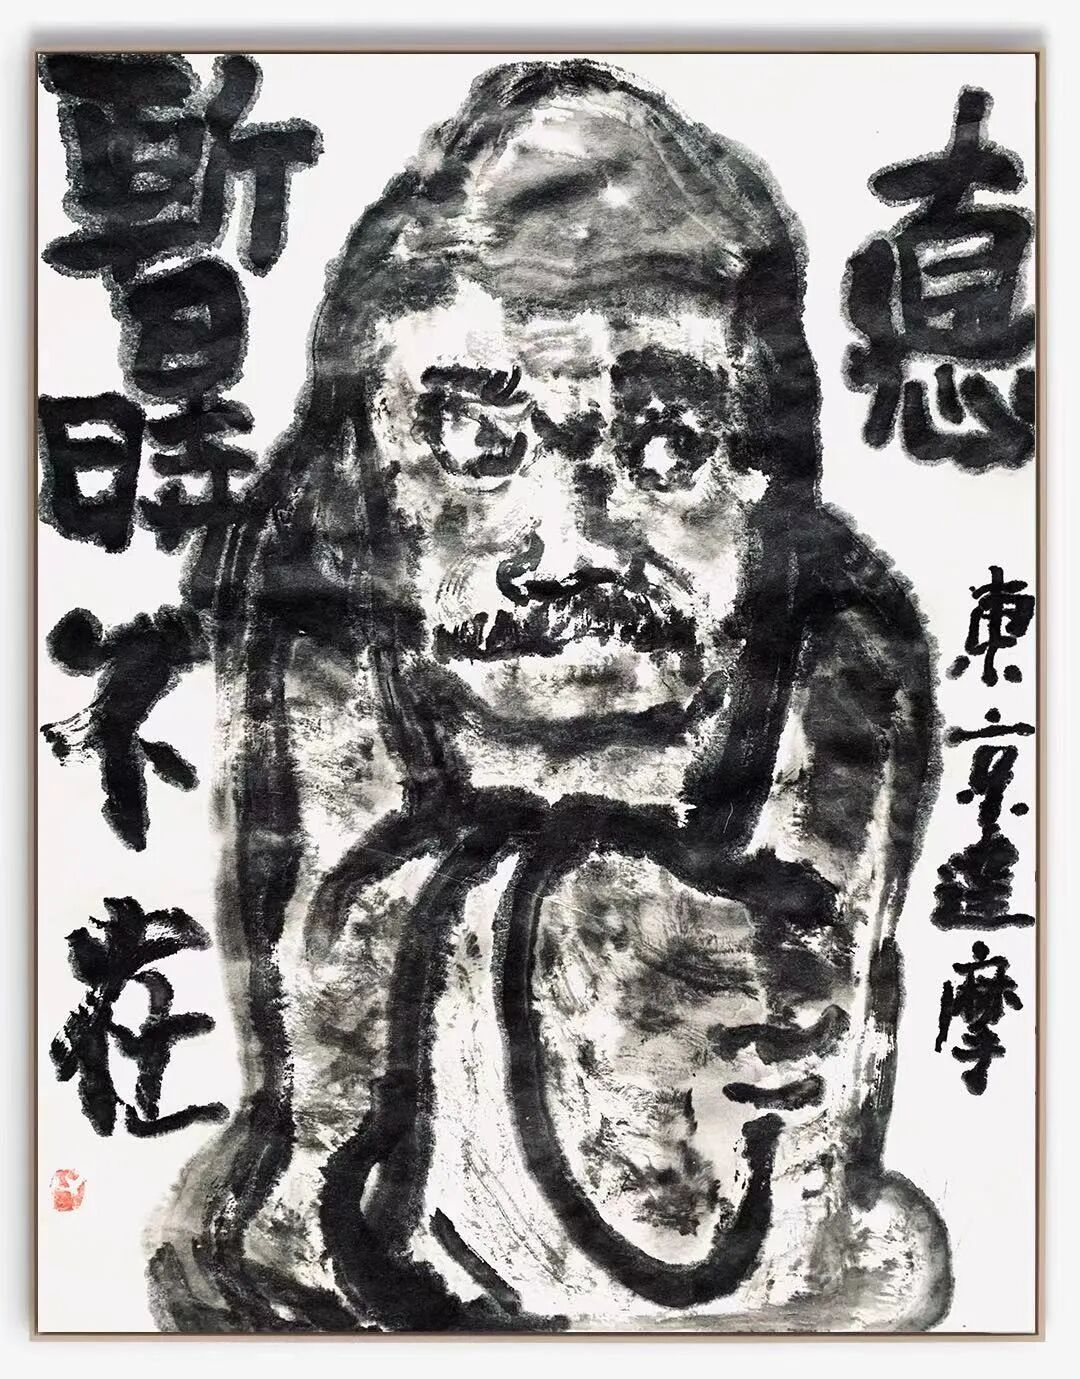 悳
東京達摩
暫時不在